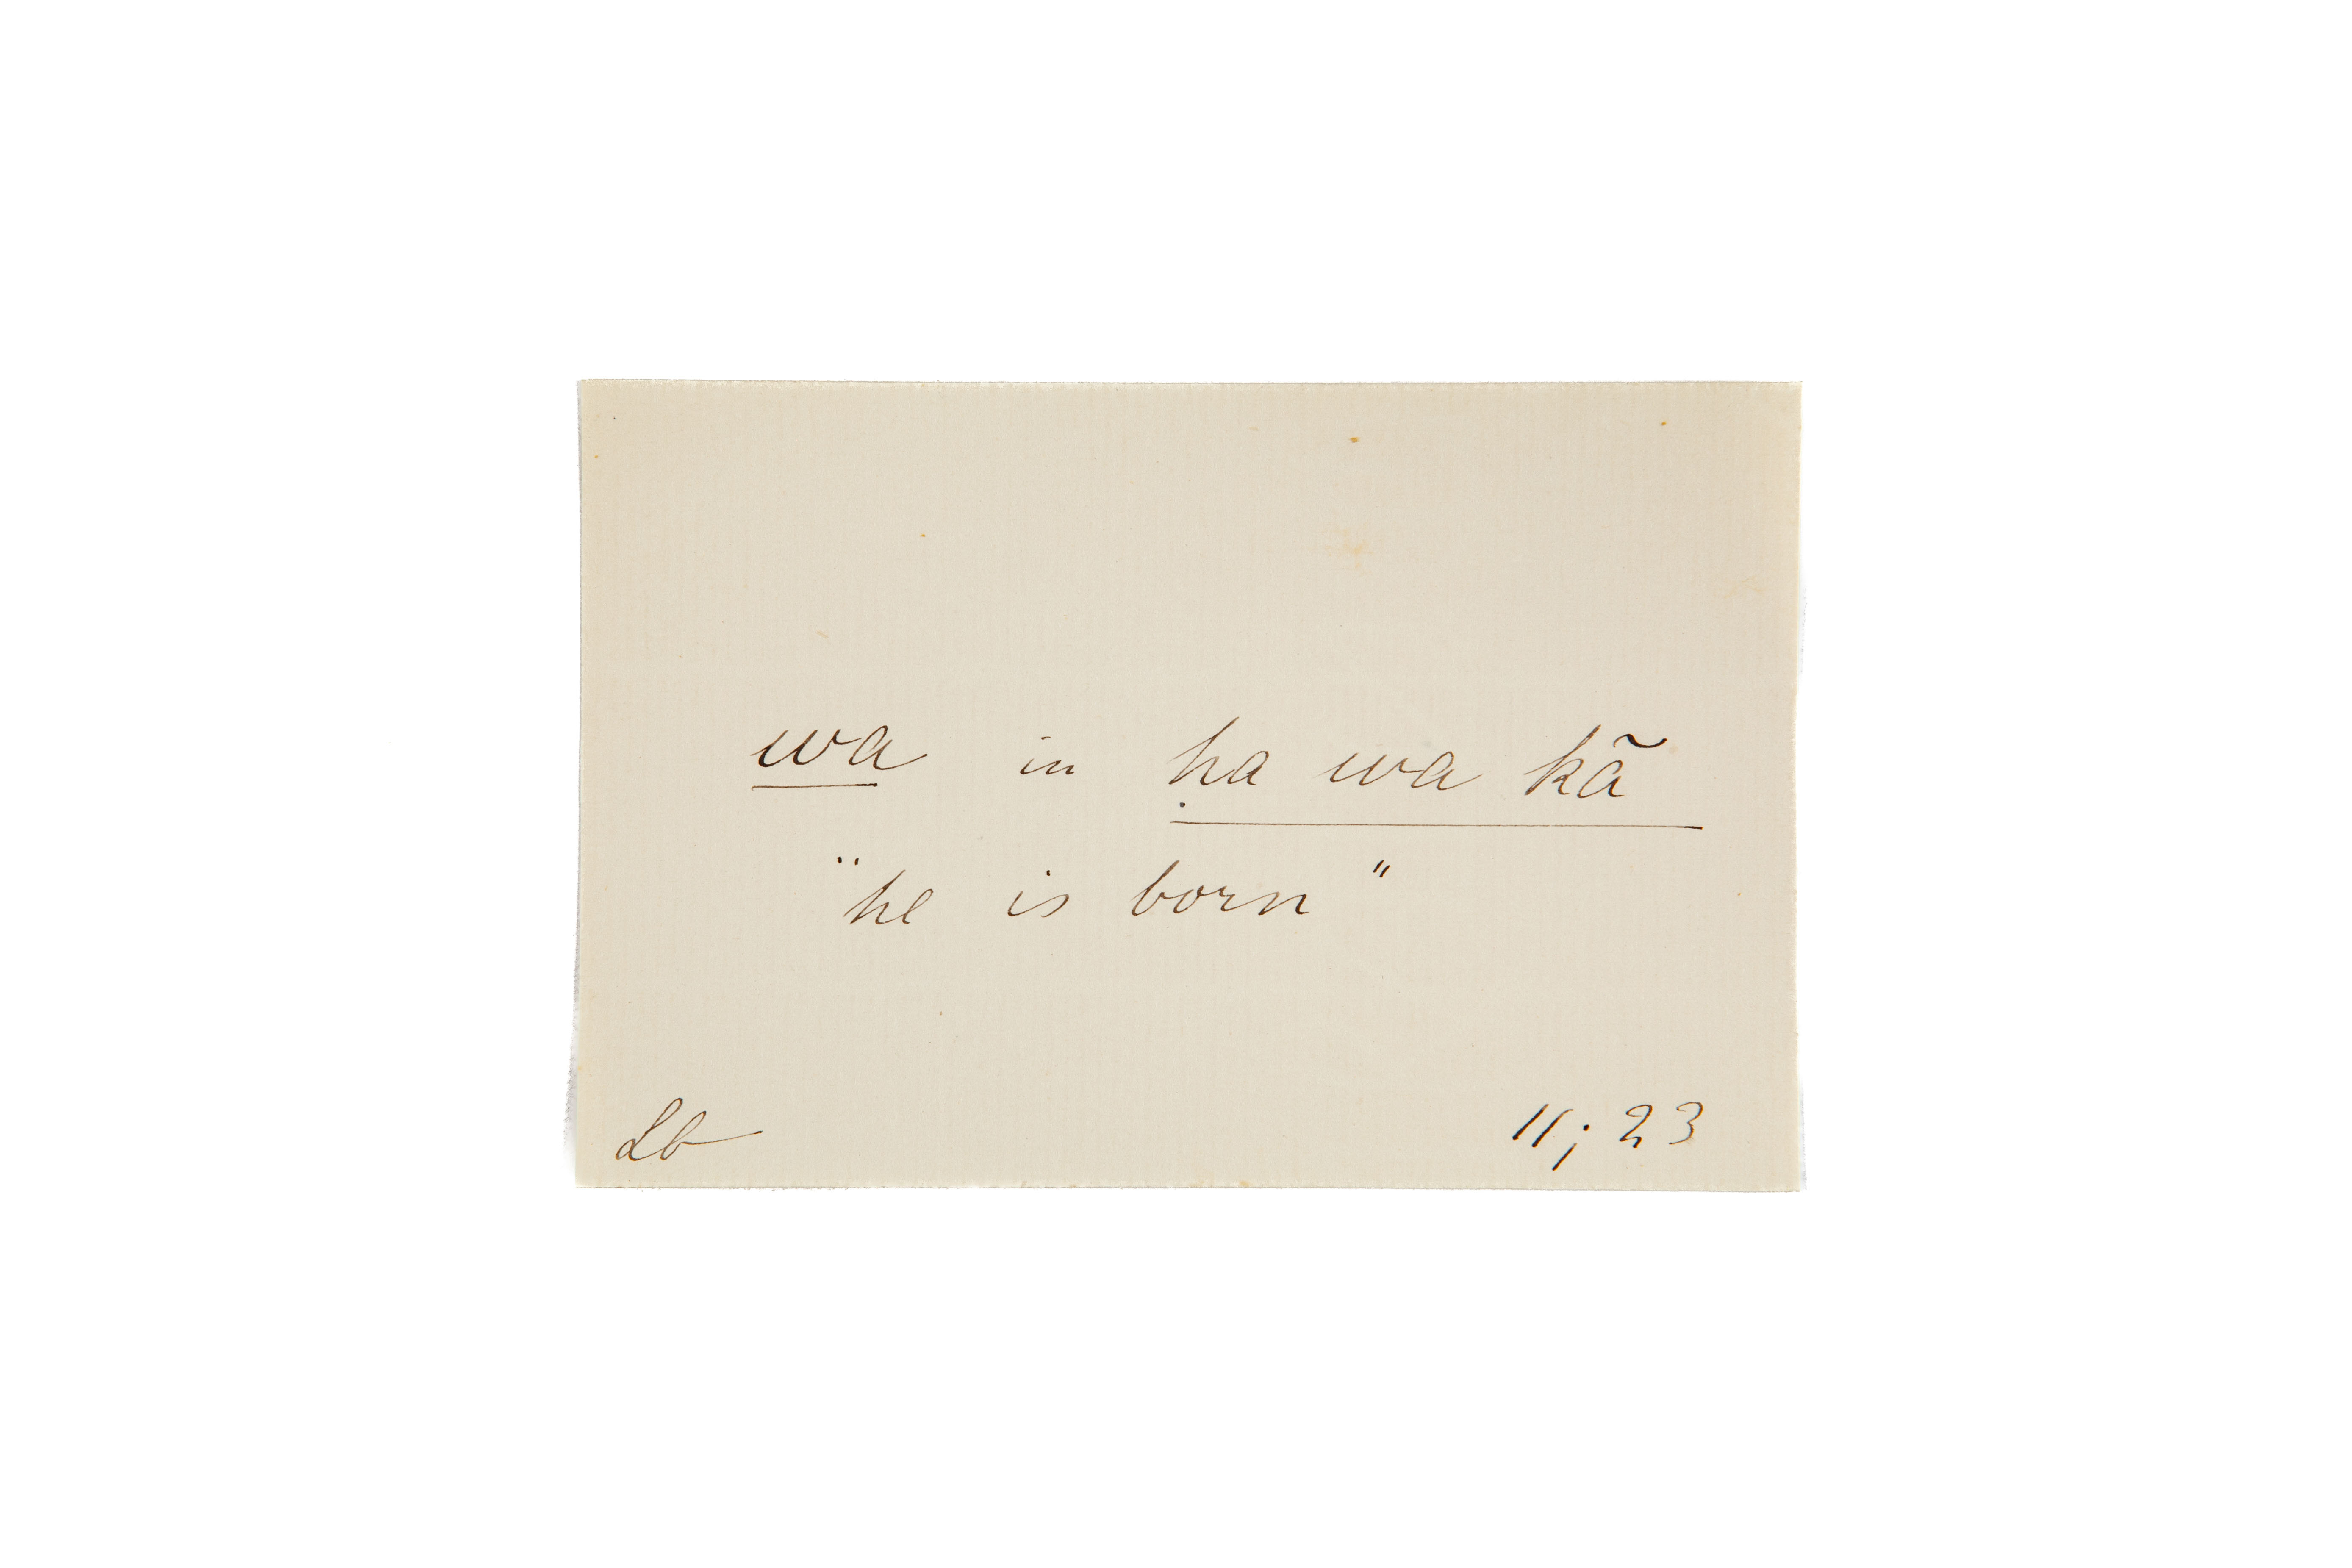 wa in ḥa wa kã
"he is born"
Lb 11; 23